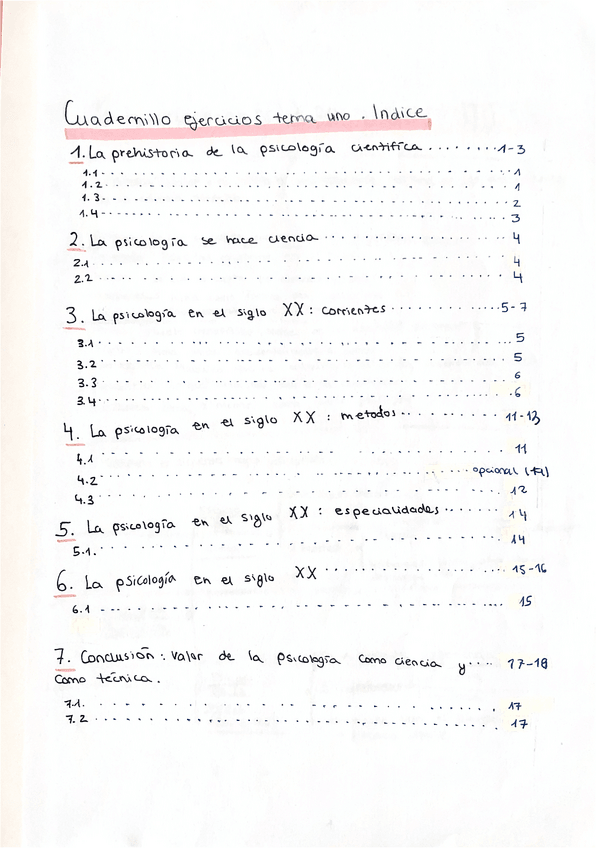 Cuadernillo ejercicios tema uno. Indice
1. La prehistoria de la psicología cientifíca ........ 1-3
1.1 ........ 1
1.2 ........ 1
1.3 ........ 2
1.4 ........ 3
2. La psicología se hace ciencia ........ 4
2.1 ........ 4
2.2 ........ 4
3. La psicología en el siglo XX: corrientes ........ 5-7
3.1 ........ 5
3.2 ........ 5
3.3 ........ 6
3.4 ........ 6
4. La psicología en el siglo XX: metodos ........ 11-13
4.1 ........ 11
4.2 ........ opcional (+1)
4.3 ........ 12
5. La psicología en el siglo XX: especialidades ........ 14
5.1. ........ 14
6. La psicología en el siglo XX ........ 15-16
6.1 ........ 15
7. Conclusión: valor de la psicología como ciencia y .... 17-18
como técnica.
7.1. ........ 17
7.2 ........ 17